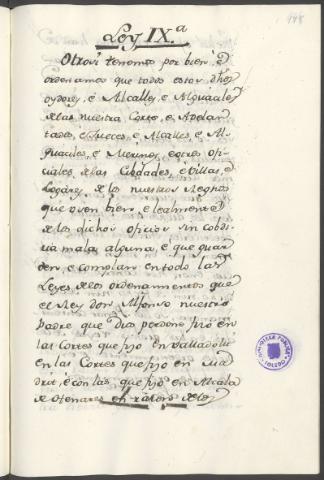 148
Ley IX.ª
Otrosi tenemos por bien, é
ordenamos que todos estos dhos
oydores, é Alcalles, é Alguaciles
de la nuestra Corte, e Adelan
tados, é Jueces, é Alcalles, é Al
guaciles, é Merinos, e otros ofi
ciales, de las Cibdades, é Villas, é
Logares, de los nuestros Regnos
que usen bien, é lealmente
de los dichos oficios sin cobdi
cia mala alguna, é que guar
den, é complan en todo las
Leyes de los ordenamientos que
el Rey don Alfonso nuestro
Padre que Dios perdone fizo en
las Cortes que fizo en Valladolit
en las Cortes que fizo en Ma
drit, é con las que fizo en Alcala
de Henares en razon de los
BIBLIOTECA PUBLICA
TOLEDO